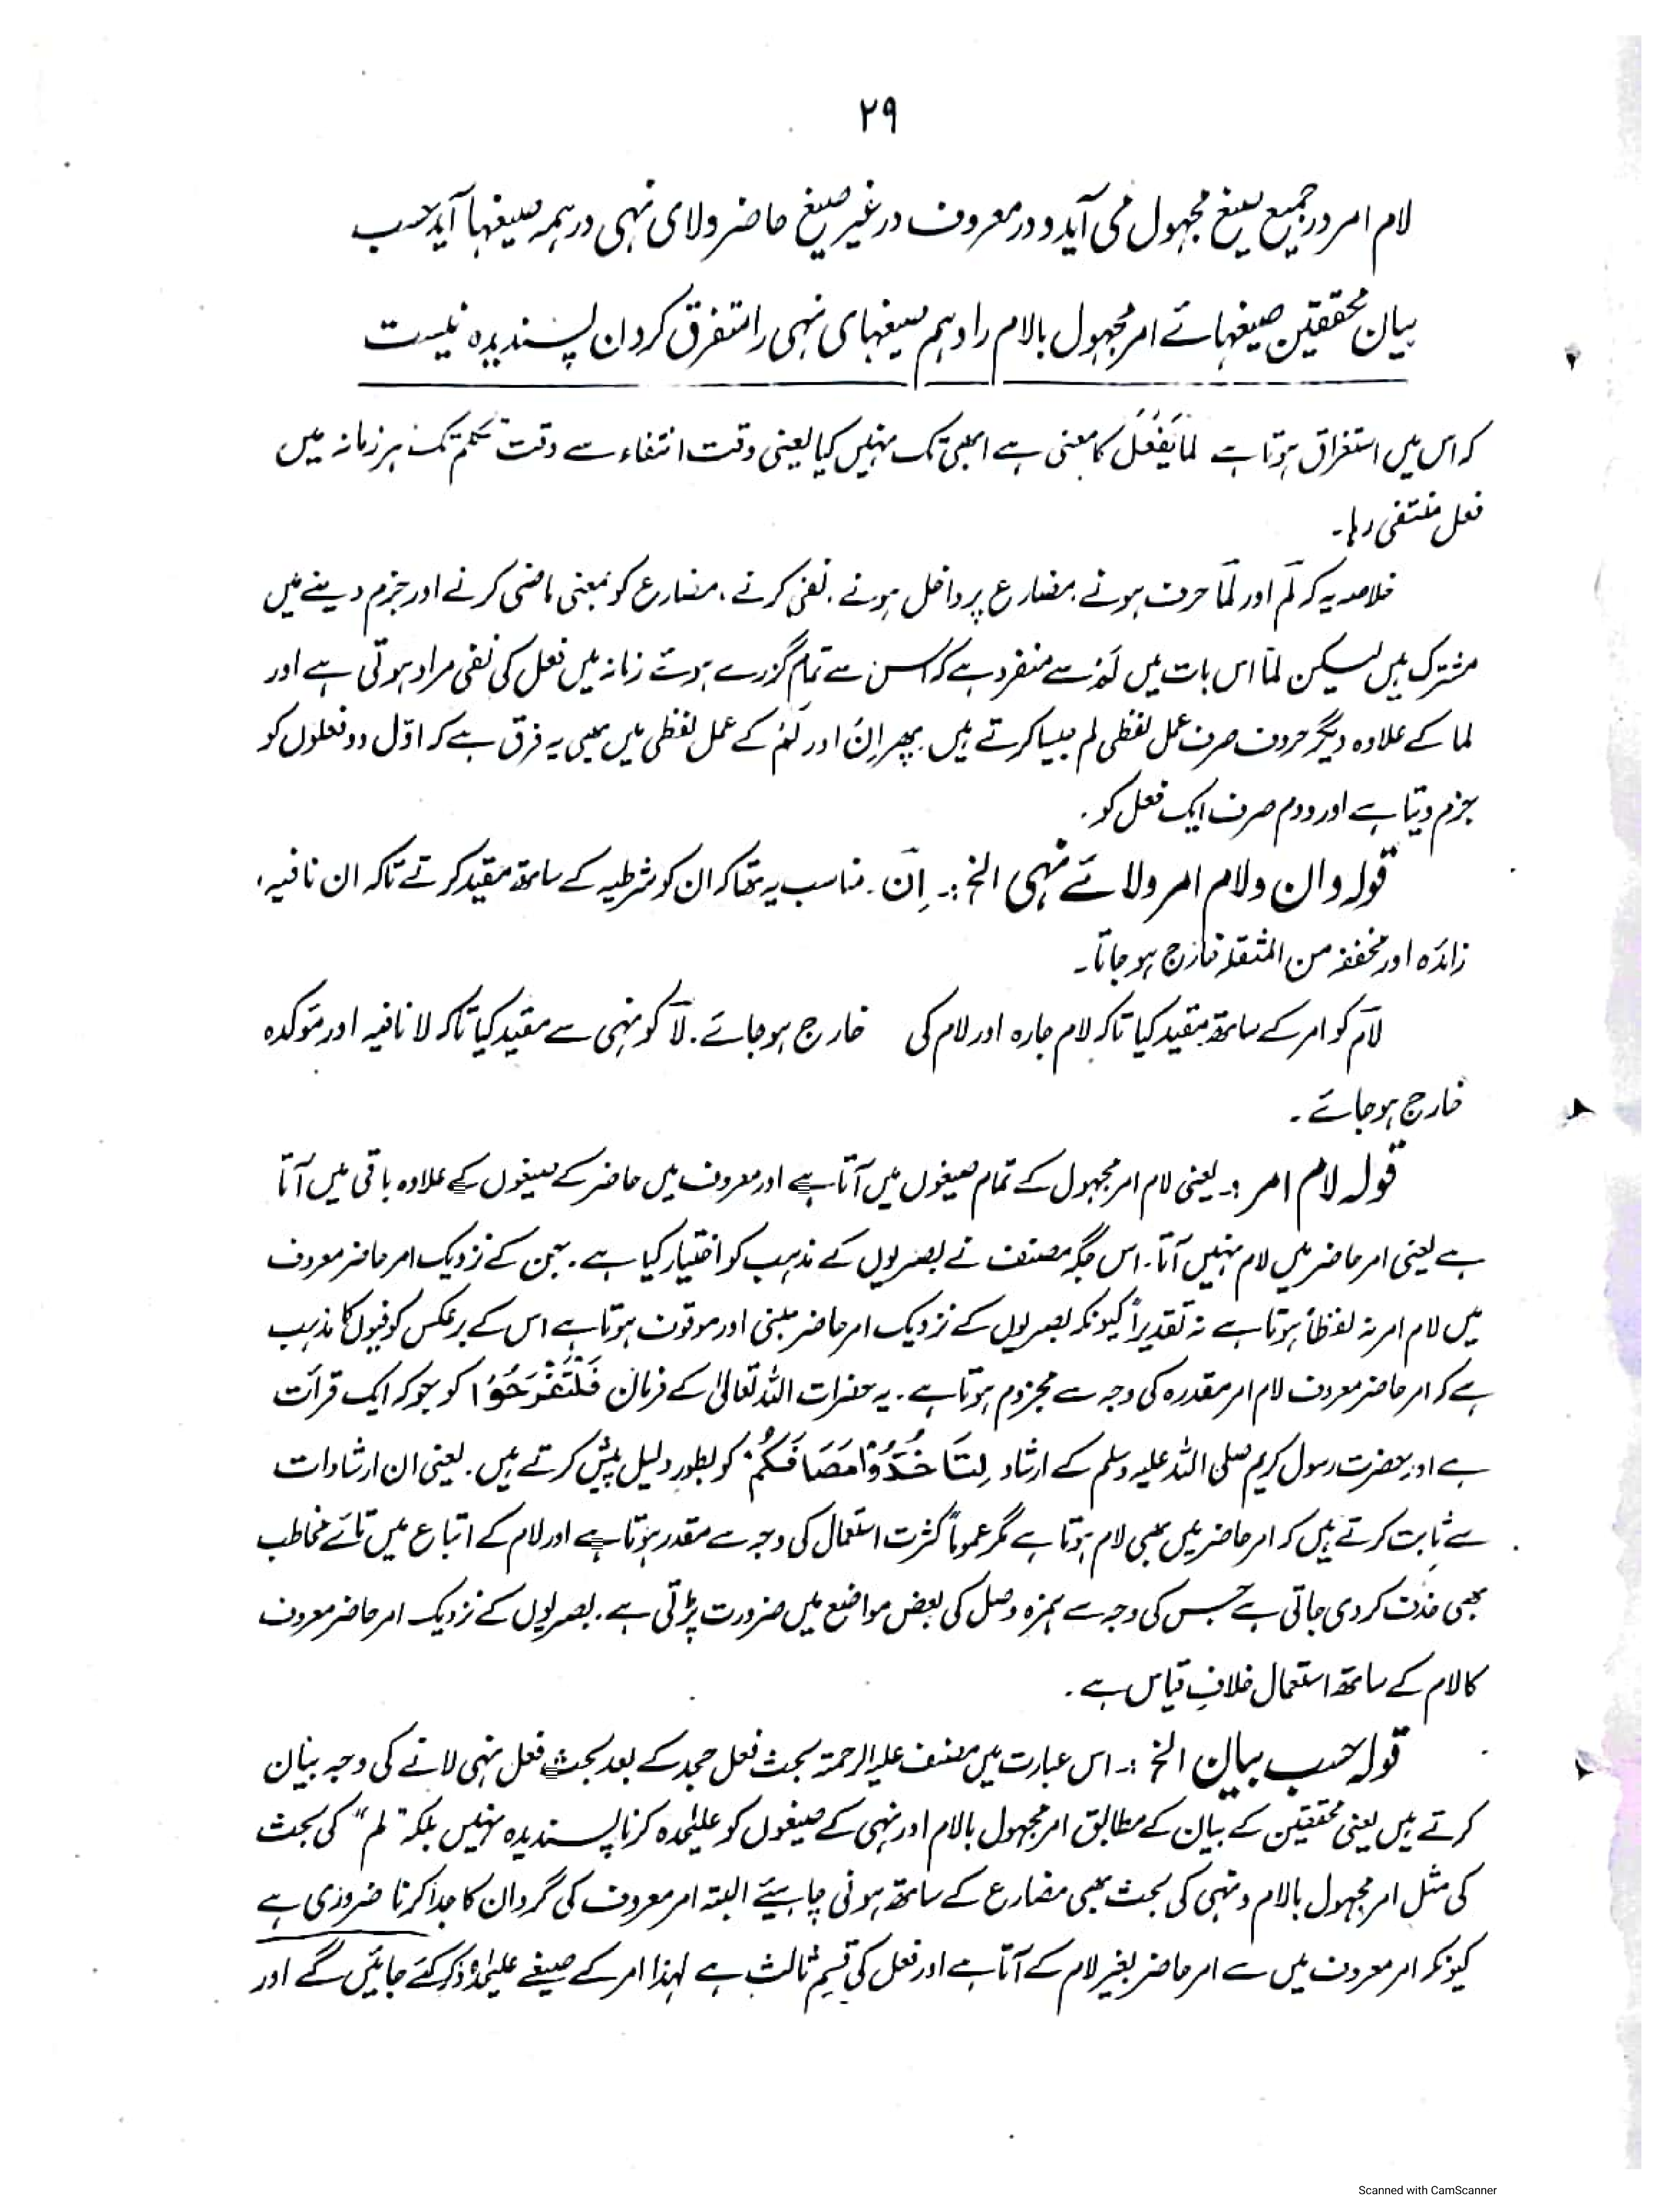 ۲۹
لام امر در جمیع صیغ مجہول می آید و در معروف در غیر صیغ حاضر ولای نہی در ہمہ صیغہا آید حسب
بیان محققین صیغہائے امر مجہول بالام را وہم صیغہای نہی را متفرق کردان پسندیدہ نیست
کہ اس میں استغراق ہوتا ہے لما یَفْعَلُ کا معنی ہے ابھی تک نہیں کیا یعنی وقت انتفاء سے وقت تکلم تک ہر زمانہ میں
فعل منتفی رہا۔
خلاصہ یہ کہ لَم اور لَمّا حرف ہونے، مضارع پر داخل ہونے، نفی کرنے، مضارع کو بمعنی ماضی کرنے اور جزم دینے میں
مشترک ہیں لیکن لمّا اس بات میں لَمْ سے منفرد ہے کہ اس سے تمام گزرے ہوئے زمانہ میں فعل کی نفی مراد ہوتی ہے اور
لما کے علاوہ دیگر حروف صرف عمل لفظی لم جیسا کرتے ہیں۔ پھر اِنْ اور لَمْ کے عمل لفظی میں بھی یہ فرق ہے کہ اوّل دو فعلوں کو
جزم دیتا ہے اور دوم صرف ایک فعل کو۔
قولہ وان ولام امر ولائے نہی الخ :۔ اِن۔ مناسب یہ تھا کہ ان کو شرطیہ کے ساتھ مقید کرتے تاکہ ان نافیہ،
زائدہ اور مخففہ من المثقلہ خارج ہو جاتا۔
لام کو امر کے ساتھ مقید کیا تاکہ لام جارہ اور لام کی خارج ہو جائے۔ لا کو نہی سے مقید کیا تاکہ لا نافیہ اور مؤکدہ
خارج ہو جائے۔
قولہ لام امر :۔ یعنی لام امر مجہول کے تمام صیغوں میں آتا ہے اور معروف میں حاضر کے صیغوں کے علاوہ باقی میں آتا
ہے یعنی امر حاضر میں لام نہیں آتا۔ اس جگہ مصنف نے بصریوں کے مذہب کو اختیار کیا ہے۔ جن کے نزدیک امر حاضر معروف
میں لام امر نہ لفظاً ہوتا ہے نہ تقدیراً کیونکہ بصریوں کے نزدیک امر حاضر مبنی اور موقوف ہوتا ہے اس کے برعکس کوفیوں کا مذہب
ہے کہ امر حاضر معروف لام امر مقدرہ کی وجہ سے مجزوم ہوتا ہے۔ یہ حضرات اللہ تعالیٰ کے فرمان فَلْتَفْرَحُوْا کو جو کہ ایک قرأت
ہے اور حضرت رسول کریم صلی اللہ علیہ وسلم کے ارشاد لِتَاخُذُوْا مَصَافَكُمْ کو بطور دلیل پیش کرتے ہیں۔ یعنی ان ارشادات
سے ثابت کرتے ہیں کہ امر حاضر میں بھی لام ہوتا ہے مگر عموماً کثرت استعمال کی وجہ سے مقدر ہوتا ہے اور لام کے اتباع میں تائے مخاطب
بھی حذف کر دی جاتی ہے جس کی وجہ سے ہمزہ وصل کی بعض مواضع میں ضرورت پڑتی ہے۔ بصریوں کے نزدیک امر حاضر معروف
کا لام کے ساتھ استعمال خلافِ قیاس ہے۔
قولہ حسب بیان الخ :۔ اس عبارت میں مصنف علیہ الرحمۃ بحث فعل جحد کے بعد بحث فعل نہی لانے کی وجہ بیان
کرتے ہیں یعنی محققین کے بیان کے مطابق امر مجہول بالام اور نہی کے صیغوں کو علیٰحدہ کرنا پسندیدہ نہیں بلکہ "لم" کی بحث
کی مثل امر مجہول بالام و نہی کی بحث بھی مضارع کے ساتھ ہونی چاہیئے البتہ امر معروف کی گردان کا جدا کرنا ضروری ہے
کیونکہ امر معروف میں سے امر حاضر بغیر لام کے آتا ہے اور فعل کی قسمِ ثالث ہے لہذا امر کے صیغے علیٰحدہ ذکر کئے جائیں گے اور
Scanned with CamScanner